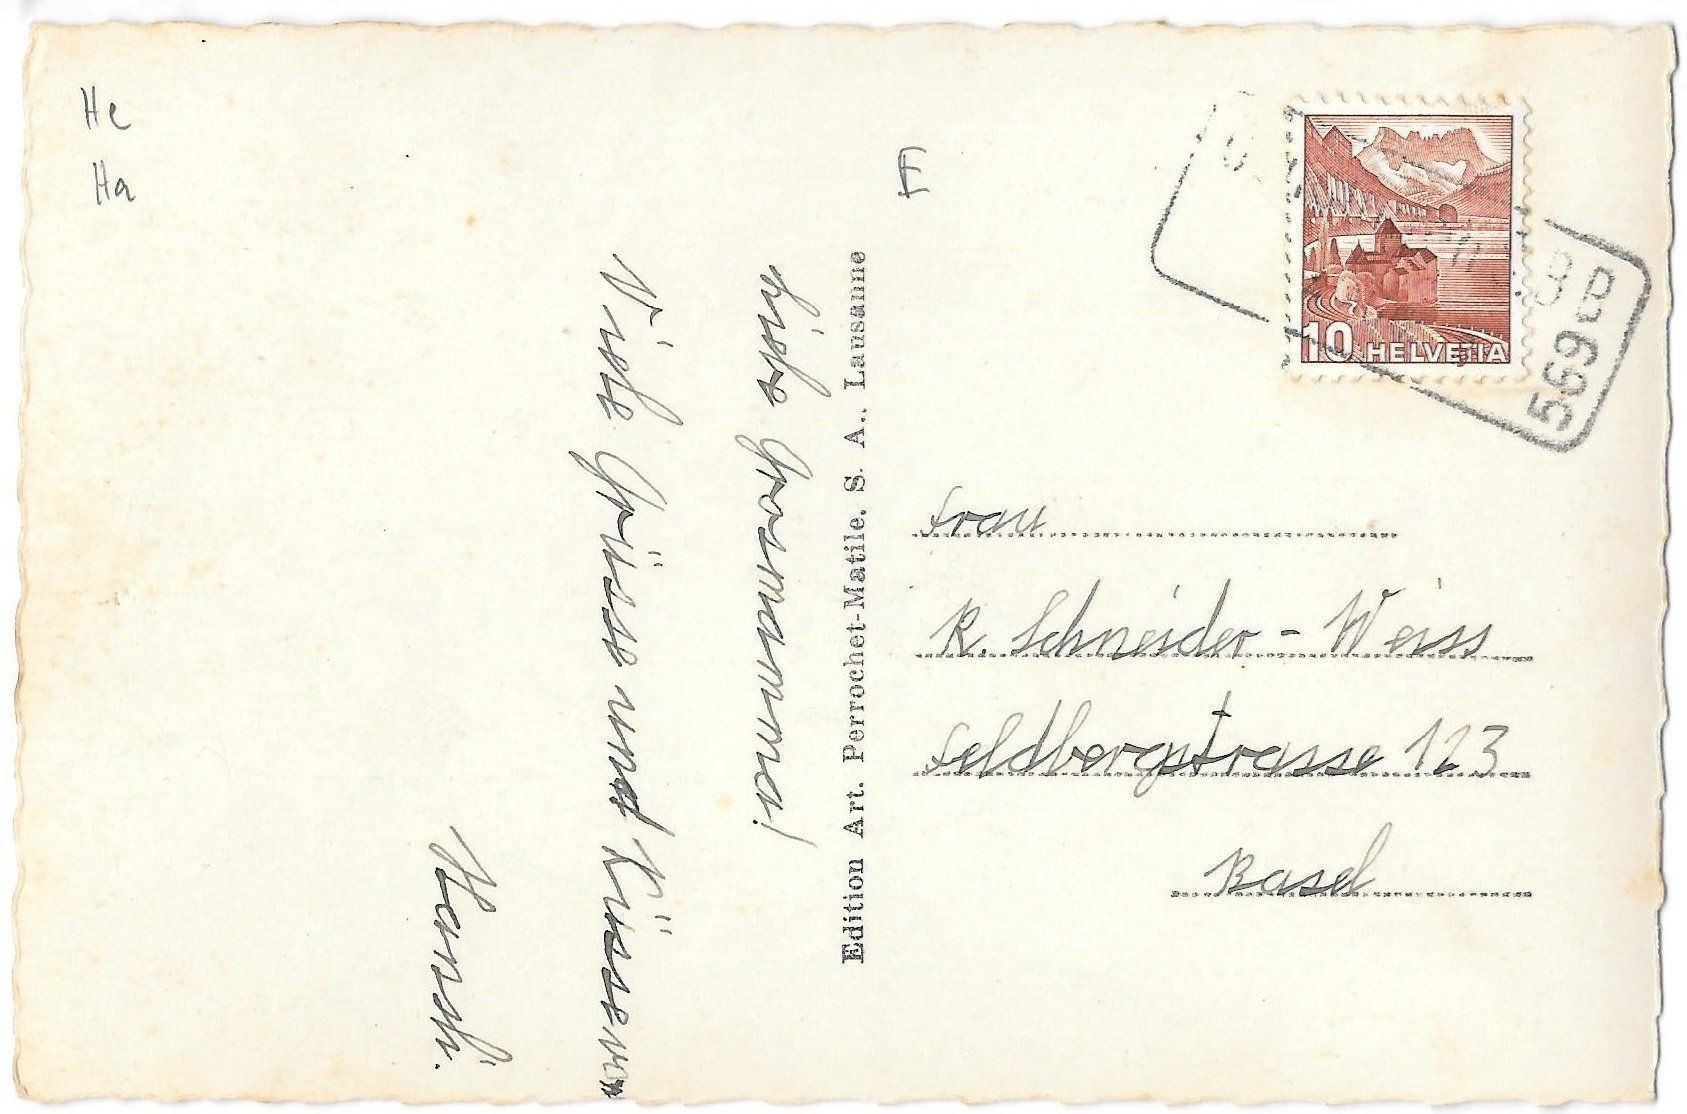 He
Ha
Liebe Grosmamma!
Viele Grüsse und Küssen
Hansli.
Edition Art. Perrochet-Matile, S. A., Lausanne
F
10 HELVETIA
569 B
Frau
R. Schneider-Weiss
Feldbergstrasse 123
Basel